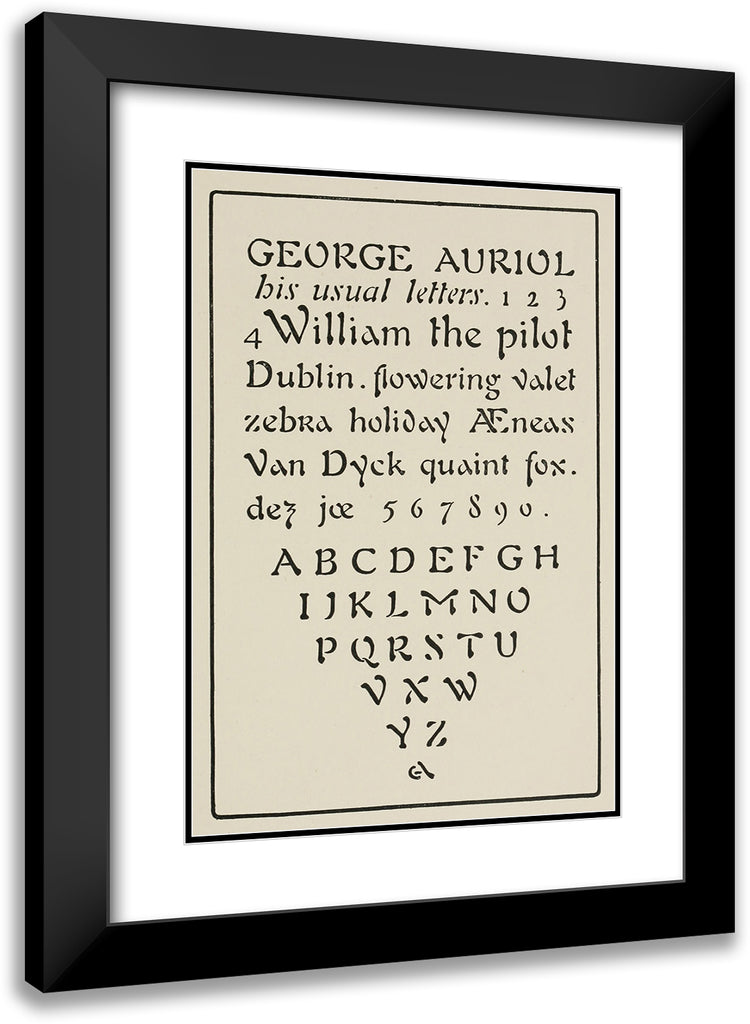 GEORGE AURIOL
his usual letters. 1 2 3
4 William the pilot
Dublin. flowering valet
zebra holiday Æneas
Van Dyck quaint fox.
dez jœ 5 6 7 8 9 0 .
A B C D E F G H
I J K L M N O
P Q R S T U
V X W
Y Z
GA